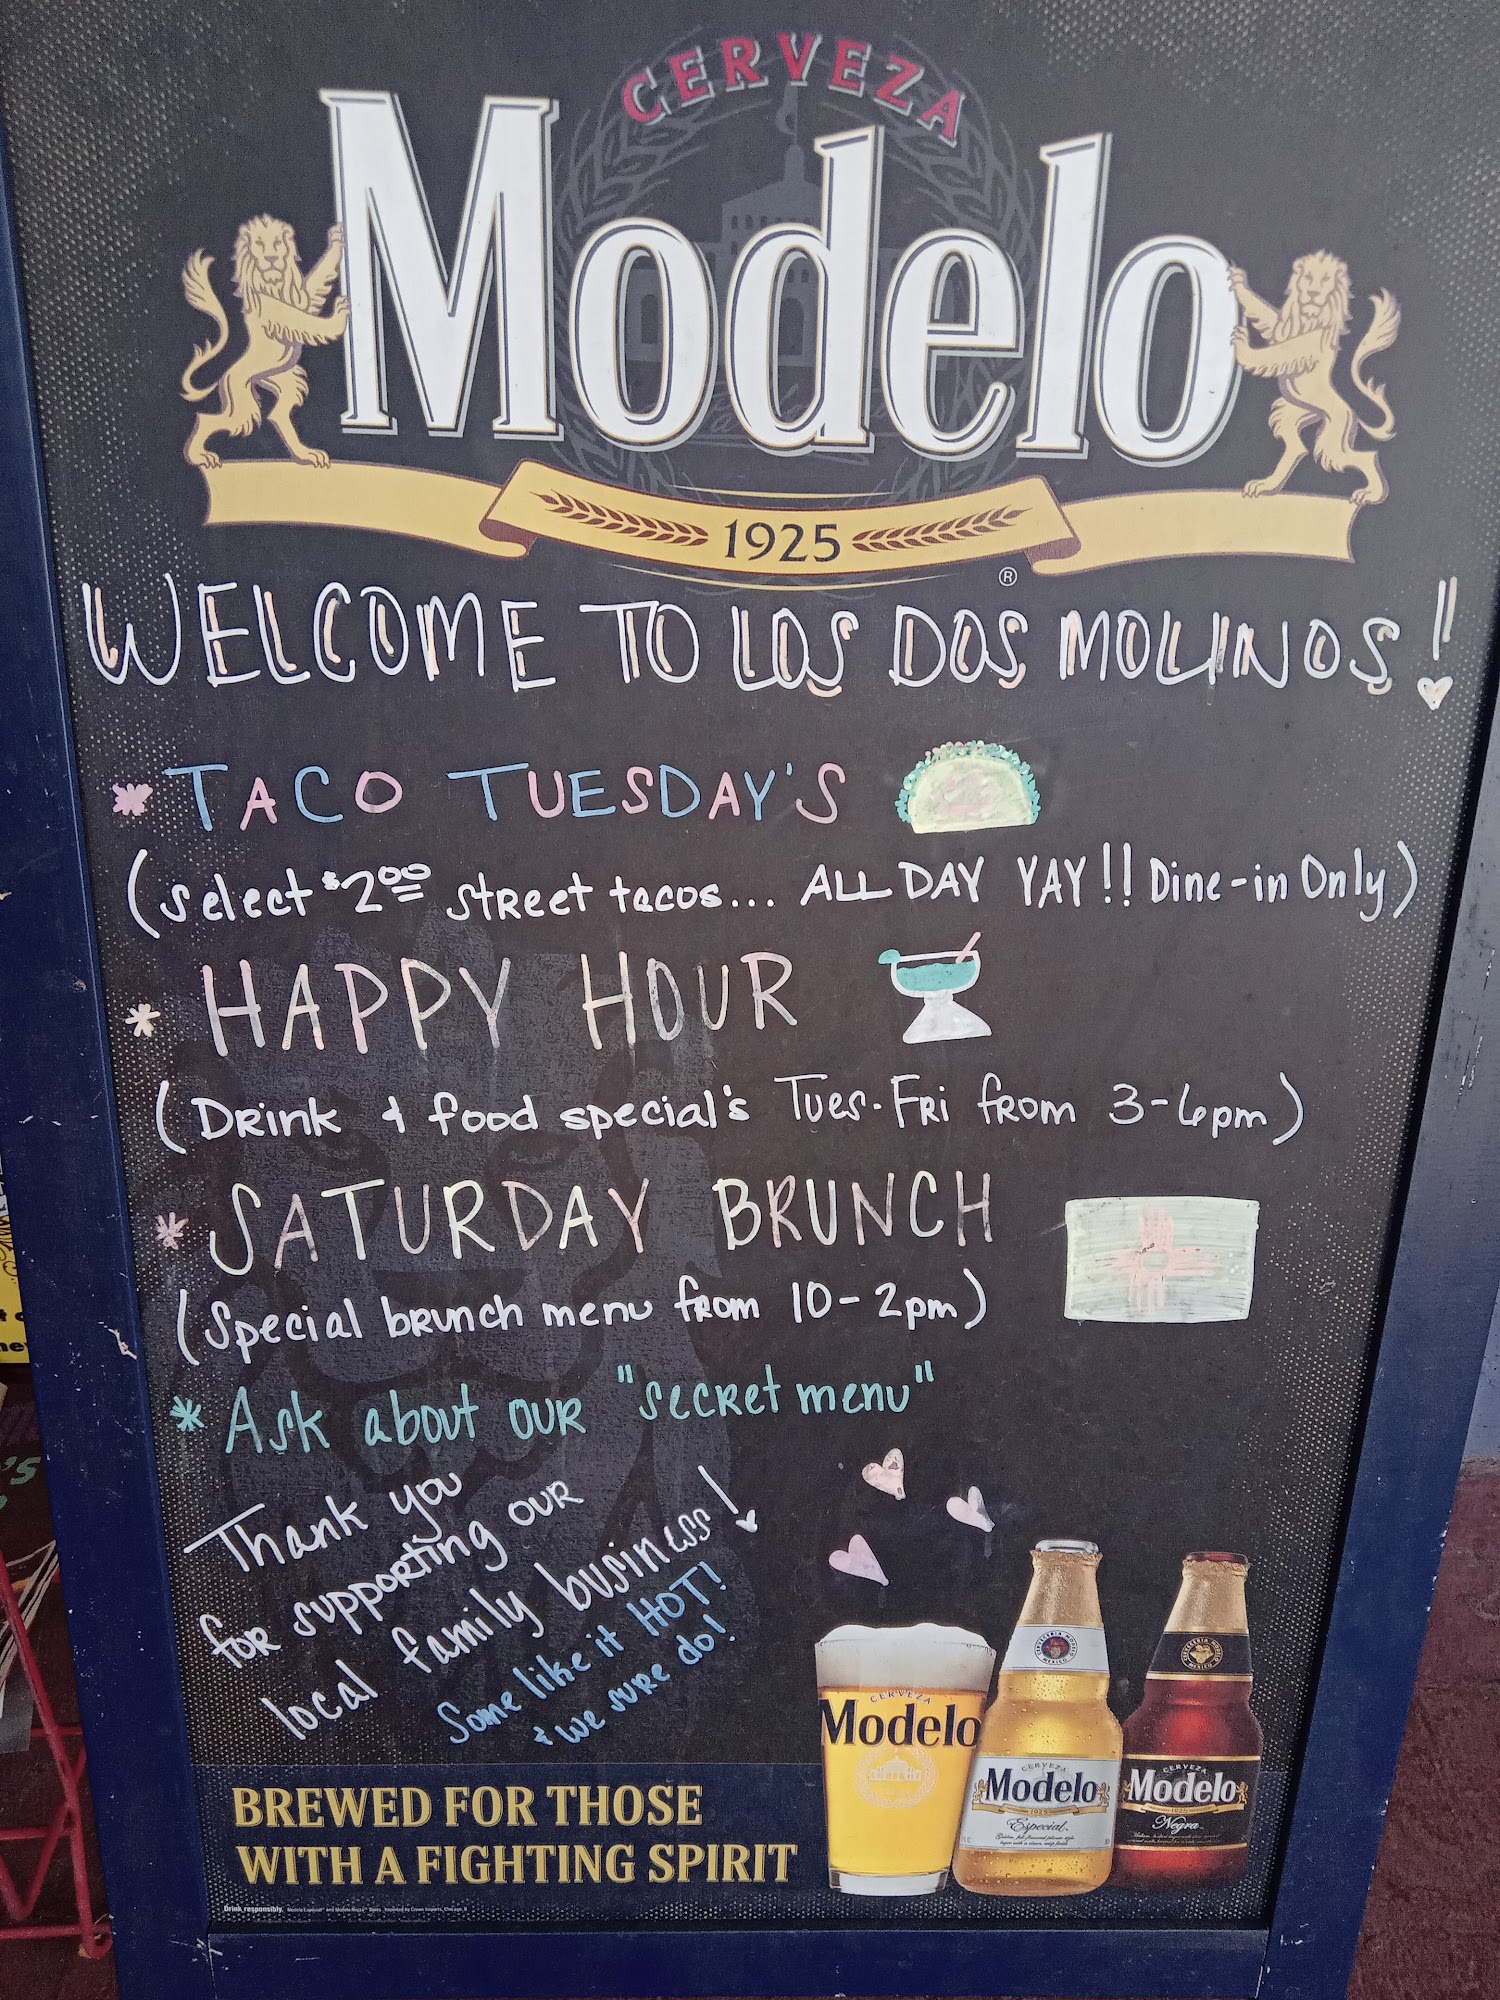 CERVEZA
Modelo
1925
®
WELCOME TO LOS DOS MOLINOS!
* TACO TUESDAY'S
(Select $2.00 street tacos... ALL DAY YAY!! Dine-in Only)
* HAPPY HOUR
(Drink & food special's Tues-Fri from 3-6pm)
* SATURDAY BRUNCH
(Special brunch menu from 10-2pm)
* Ask about our "secret menu"
Thank you
for supporting our
local family business!
Some like it HOT!
& we sure do!
CERVEZA
Modelo
CERVEZA
Modelo
1925
Especial
CERVEZA
Modelo
1925
Negra
BREWED FOR THOSE
WITH A FIGHTING SPIRIT
Drink responsibly.